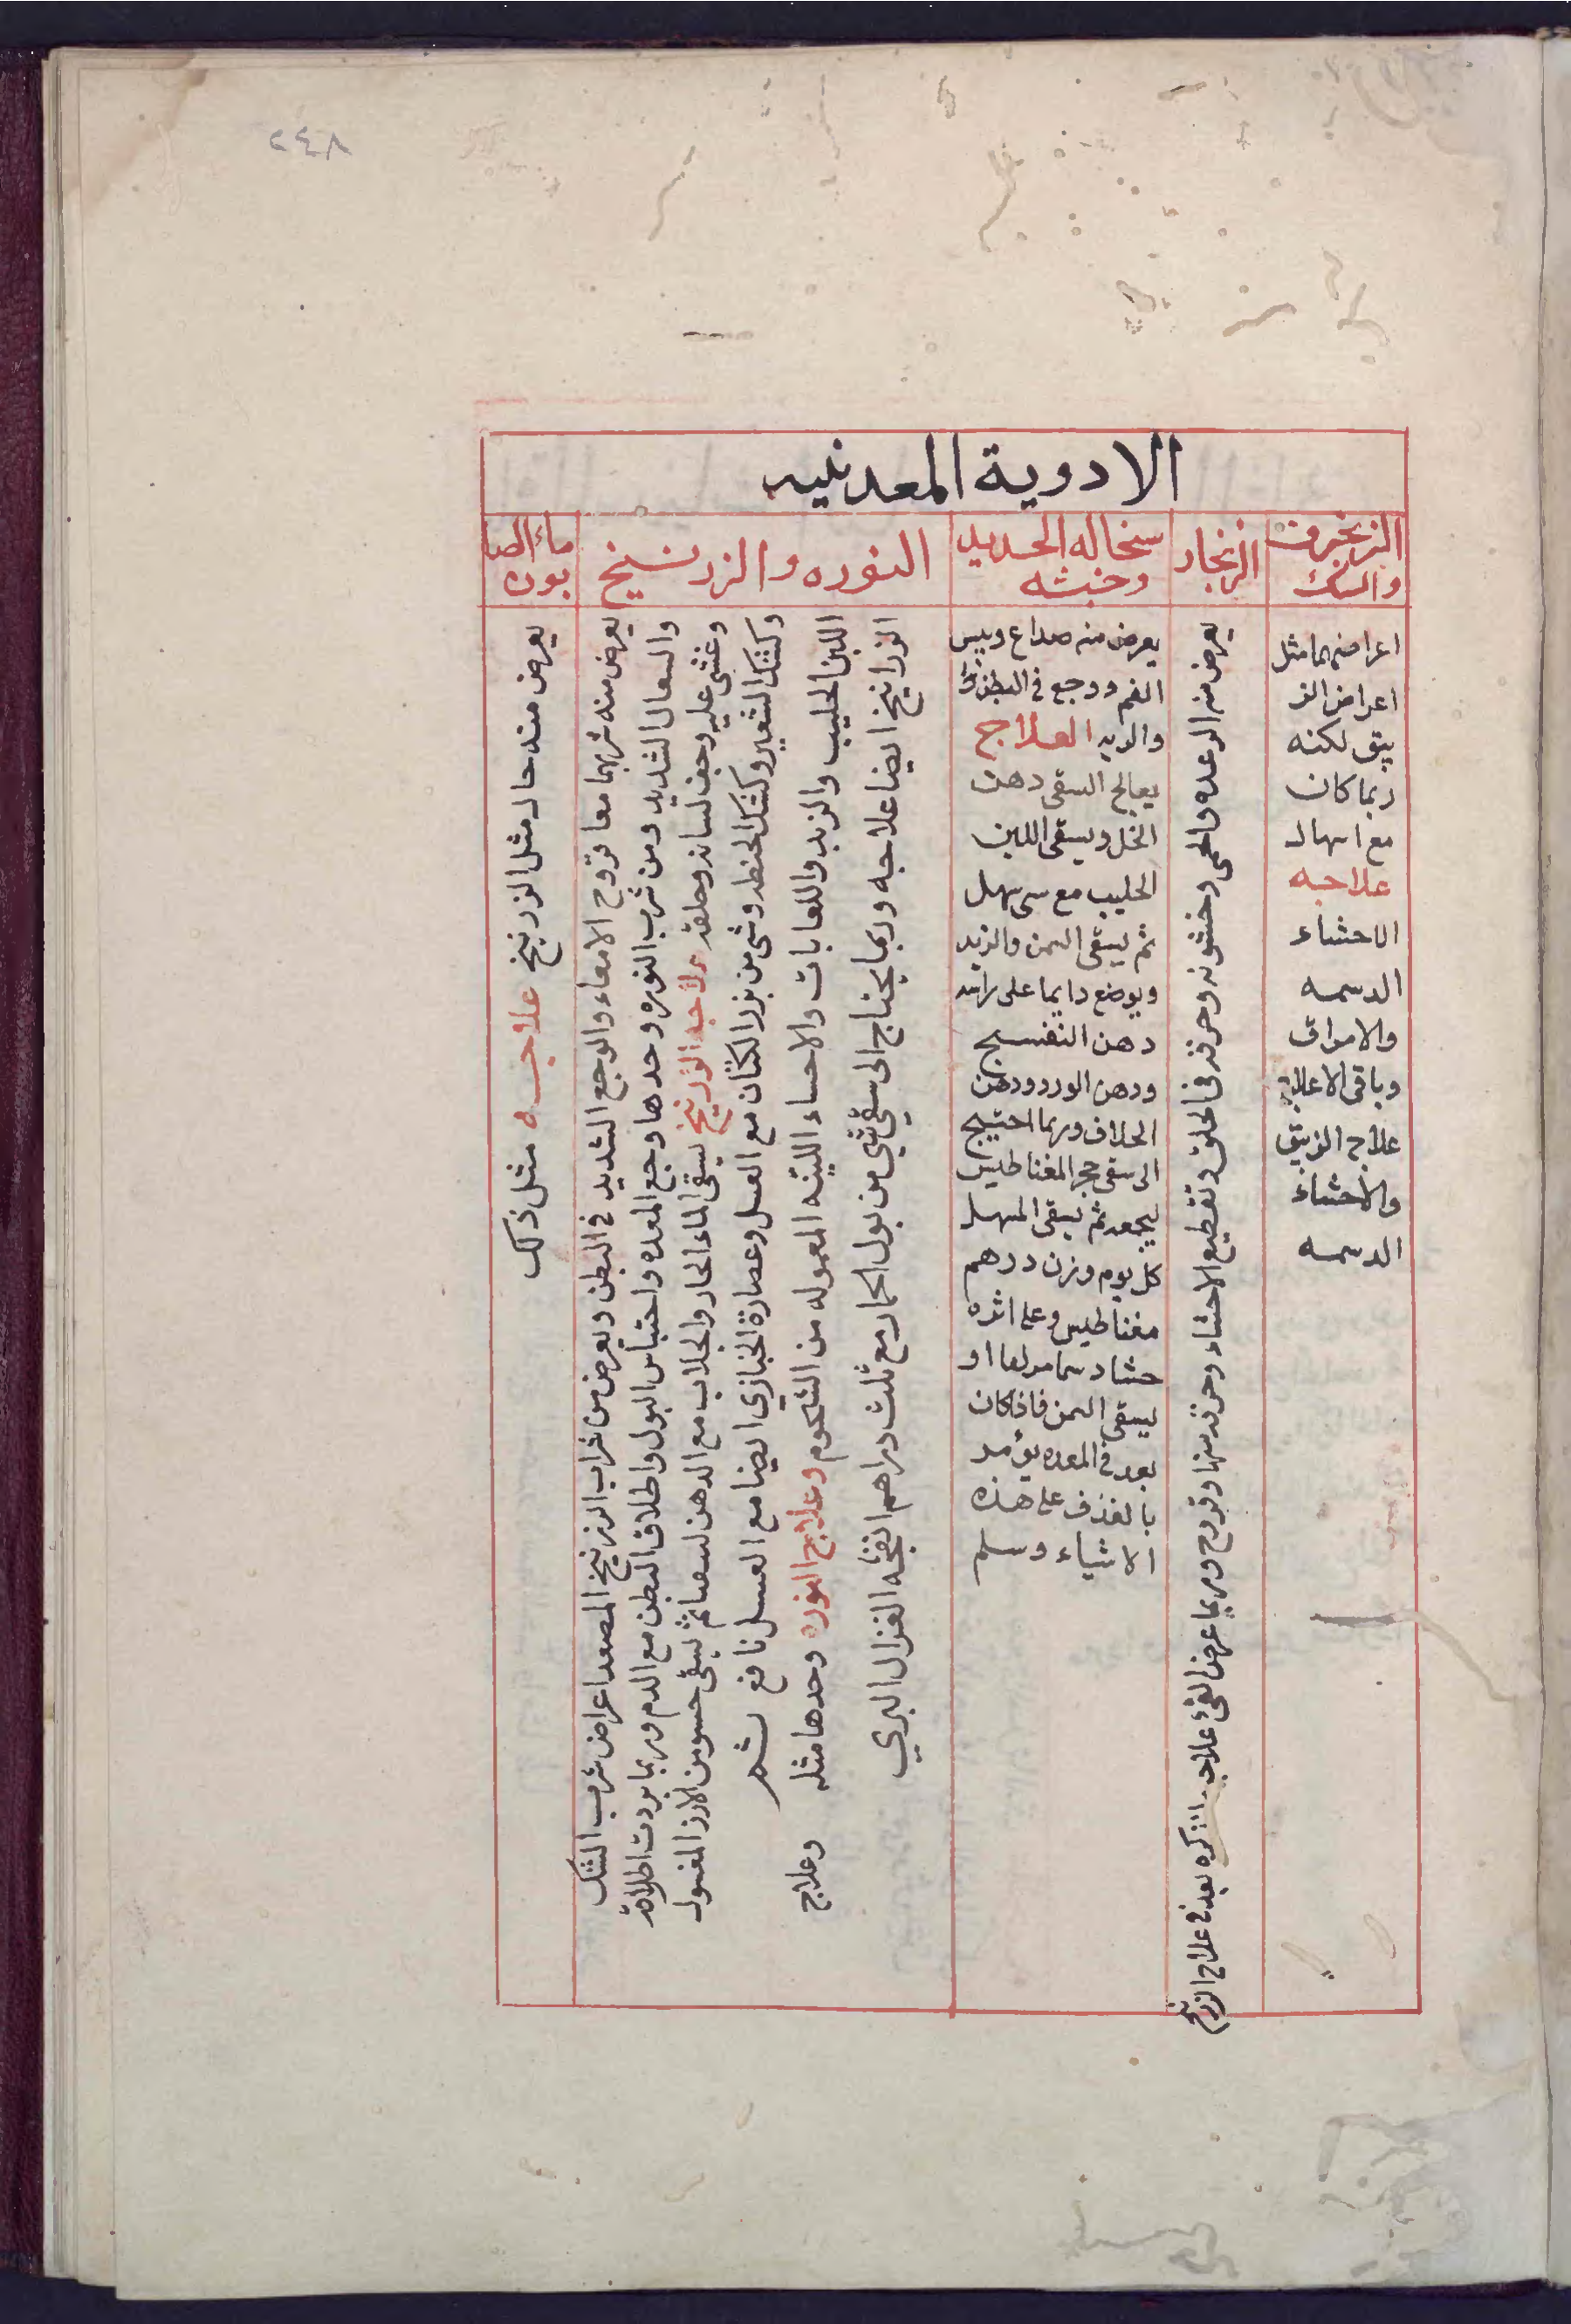 ٢٤٨
الادوية المعدنيه
الزنجفرف والسك
اعراضهما مثل
اعراض الز
يبق لكنه
ربما كان
مع اسهال
علاجه
الاحشاء
الدسمه
والامراق
وباقى الاعلاج
علاج الزيبق
والاحشاء
الدسمه
الزنجار
يعرض منه الرعده والحمى وخشونه وحرقه فى الحلق وتقطيع الاحشاء وحرقه منها وقروح وربما عرض القئ علاجه كره بعد فى علاج الزرنيخ
سخاله الحديد وخبثه
يعرض منه صداع ويبس
الفم ووجع فى البطن
والوبه العلاج
يعالج السقى دهن
الخل ويسقى اللبن
الحليب مع سى سهل
ثم يسقى السمن والزبد
ويوضع دايما على راسه
دهن النفسج
ودهن الورد ودهن
الخلاف وربما احتيج
الى سقى حجر المغناطيس
ليجمعه ثم يسقى المسهل
كل يوم وزن درهم
مغناطيس وعلى اثره
حشا دسما مرلقا او
يسقى السمن فاذا كان
بعد فى المعده يومر
بالقذف على هذه
الاشياء وسلم
النوره والزرنيخ
يعرض منه شربهما معا قروح الامعاء والوجع الشديد فى البطن ويعرض من شراب الزرنيخ المصعد اعراض شرب الشك
والسعال الشديد ومن شرب النوره وحدها وجع المعده واحتباس البول واطلاق البطن مع الدم وربما بردت اطرافه
وغشى عليه وجف لسانه وحلقه علاجه الزرنيخ يسقى الماء الحار والجلاب مع الدهن لسعا ثم يسقى حسو من الارز المغسول
وكشك الشعير وكشك الحنطه وشى من بزر الكتان مع العسل وعصارة الخبازي ايضا مع العسل نافع شم
اللبن الحليب والزبد واللعابات والاحساء اللينه المعموله من الشحوم وعلاج النوره وحدها مثله وعلاج
الزرانيخ ايضا علاجه وربما يحتاج الى سقى شى من بول الحمار مع ثلث دراهم انفخه الغزال البري
ماء الصابون
يعرض منه حال مثل الزرنيخ علاجه مثل ذلك